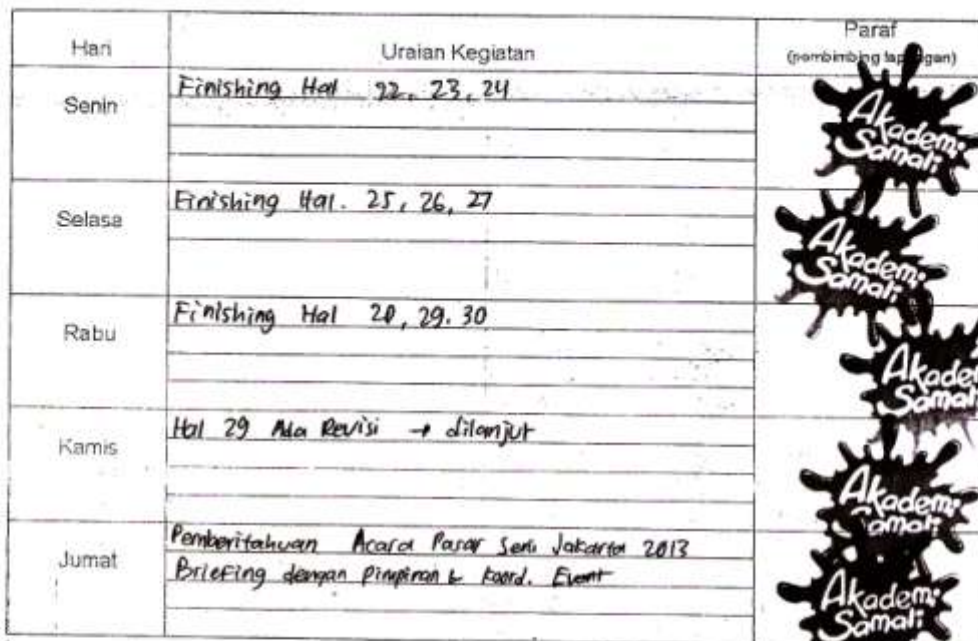 Hari Uraian Kegiatan Paraf
(pembimbing lapangan)
Senin Finishing Hal 22, 23, 24
Akademi
Samali
Selasa Finishing Hal. 25, 26, 27
Akademi
Samali
Rabu Finishing Hal 28, 29. 30
Akade
Samali
Kamis Hal 29 Ada Revisi → dilanjut
Akademi
Samali
Jumat Pemberitahuan Acara Pasar Seni Jakarta 2013
Briefing dengan pimpinan & koord. Event
Akademi
Samali